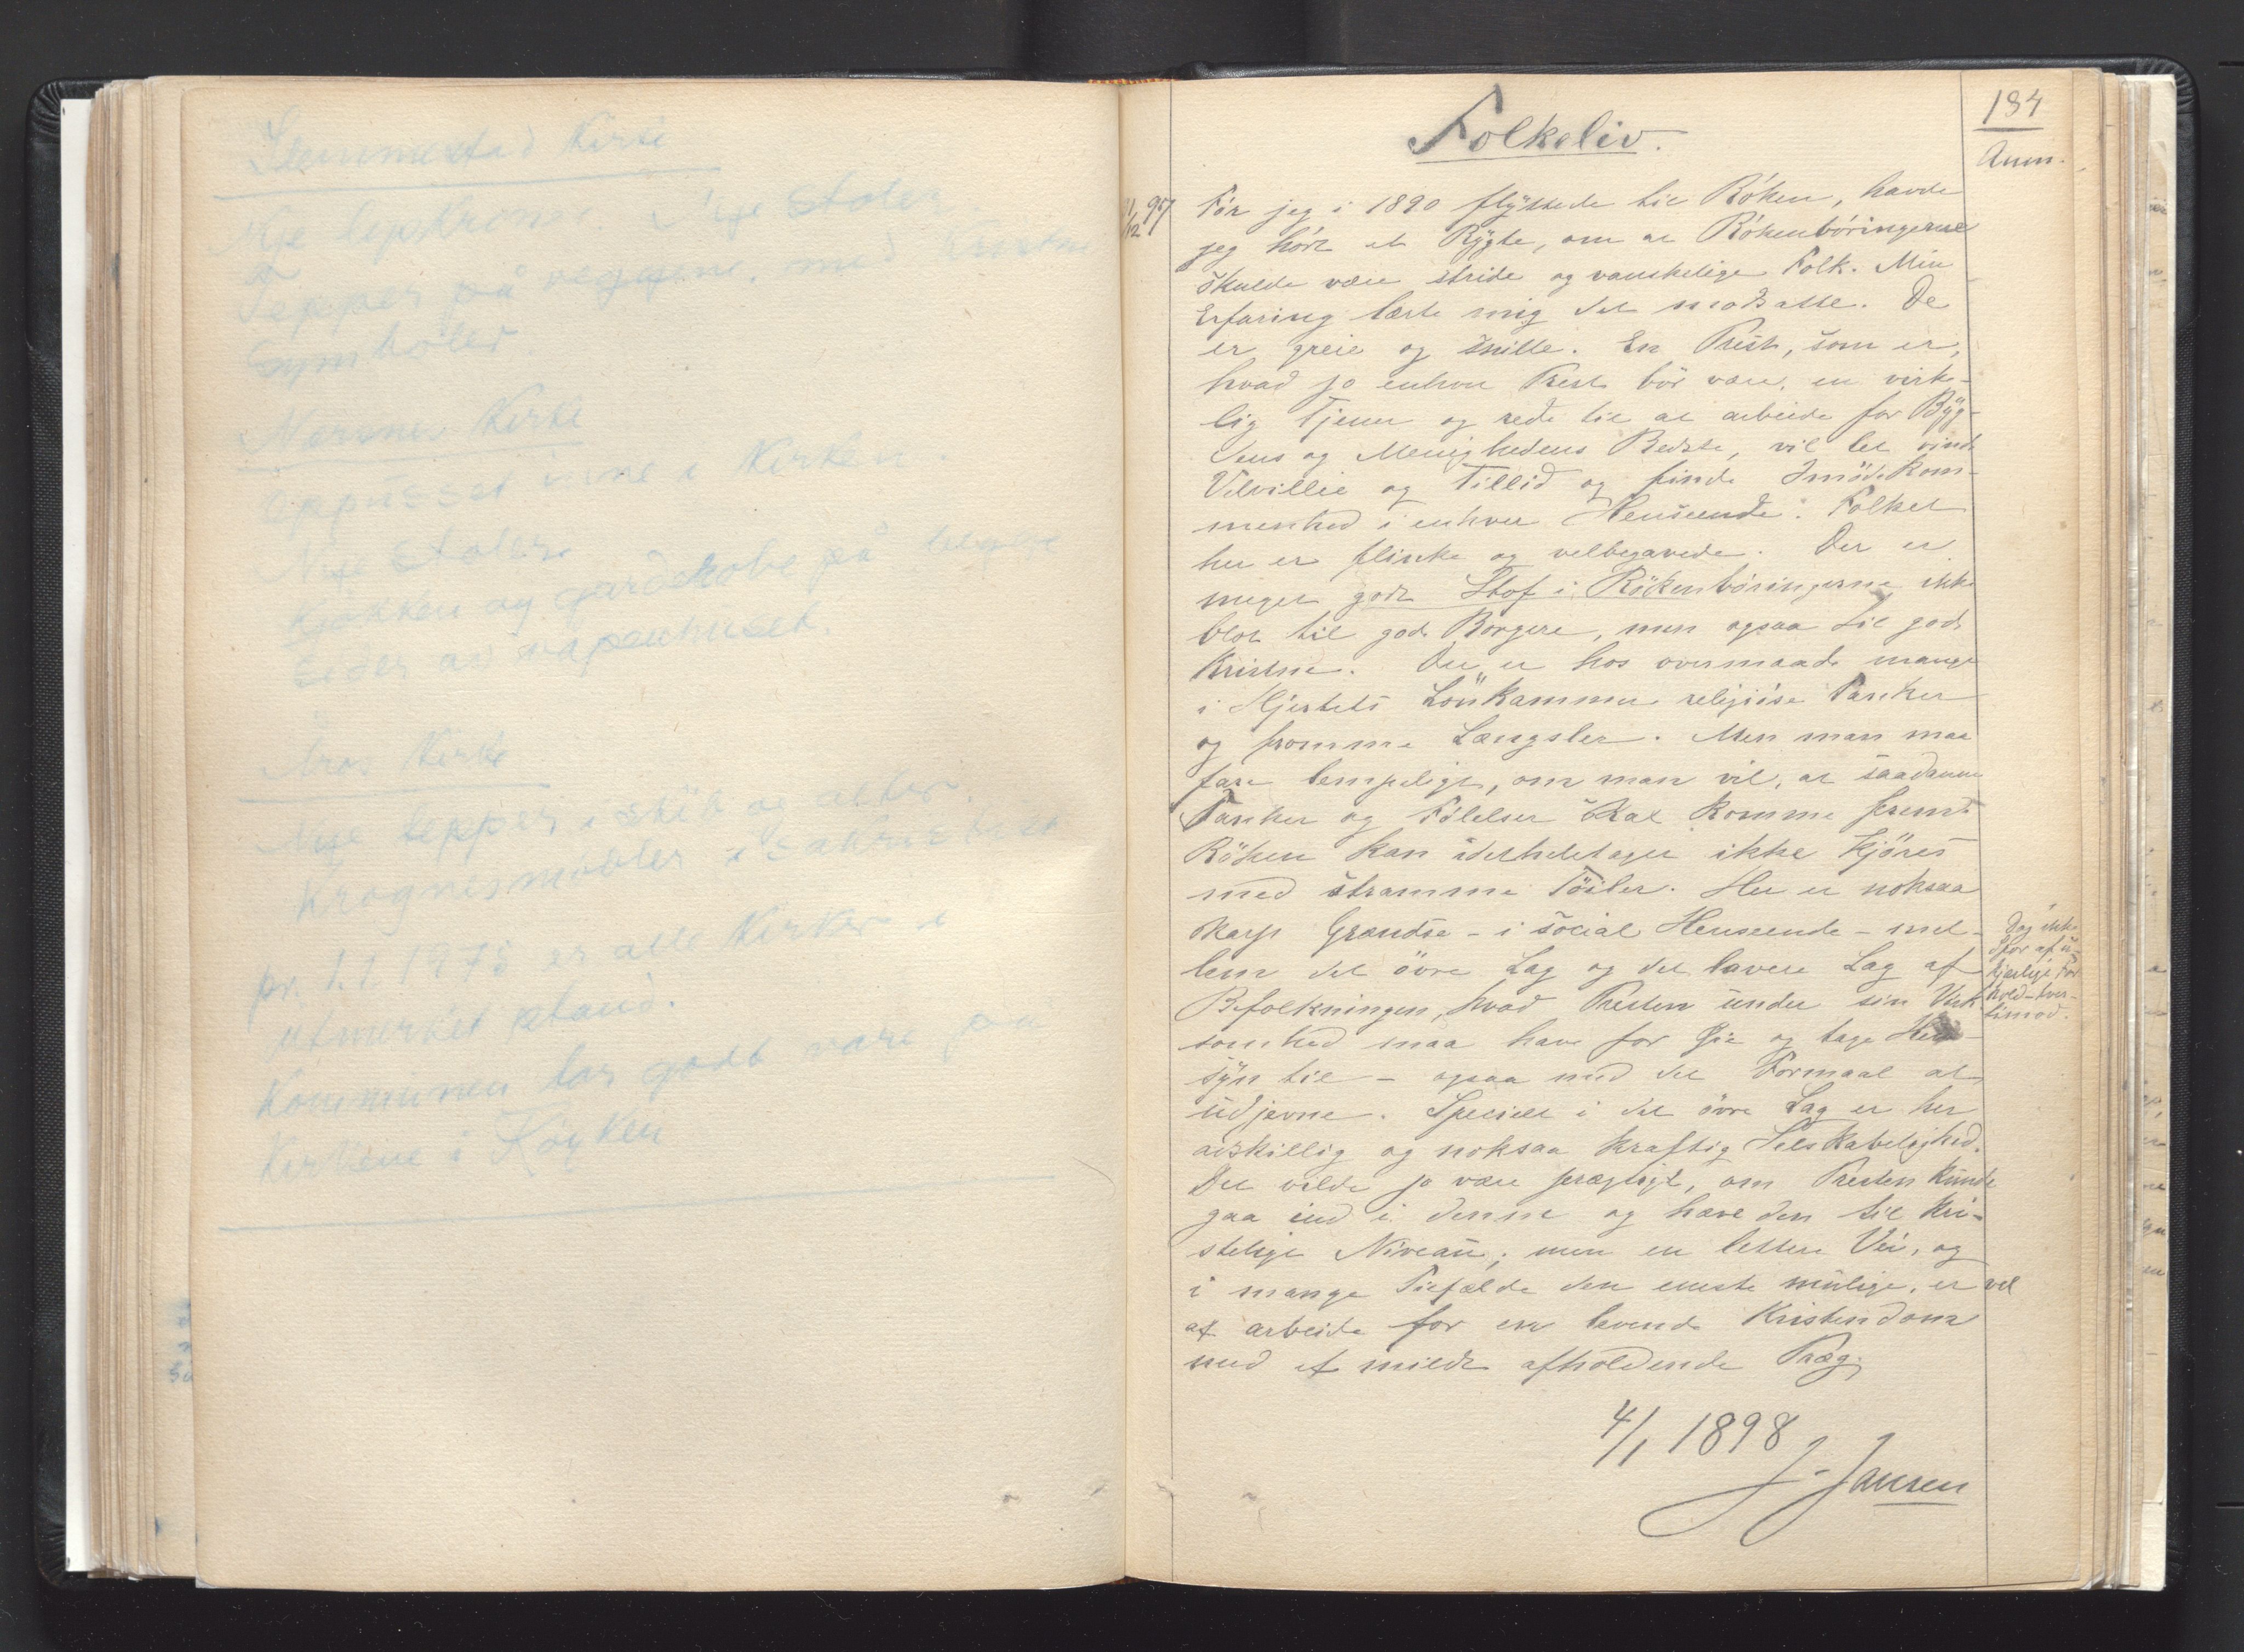 Slemmestad Kirke
Nye lysekroner Nye stoler
Tepper på veggene, med
Symboler
Nærsnes Kirke
Oppusset inne i Kirken.
Nye stoler
Kjøkken og garderobe på begge
sider av våpenhuset.
Åros Kirke
Nye tepper i skip og alter.
Krognesmøbler i Sakristiet
pr. 1.1.1978 er alle Kirker i
utmerket stand.
Kommunen tar godt vare på
Kirkene i Røyken
184
Folkeliv.
Anm.
Før jeg i 1890 flyttede til Röken, havde
jeg hørt et Rygte, om at Rökenböringerne
skulde være stride og vanskelige Folk. Min
Erfaring lærte mig det modsatte. De
er greie og snille. En Prest, som er,
hvad jo enhver Prest bör være, en virke-
lig Tjener og rede til at arbeide for Byg-
dens og Menighedens Bedste, vil let vinde
Velvillie og Tillid og finde Imödekom-
menhed i enhver Henseende. Folket
her er flinke og velbegavede. Der er
meget godt Stof i Rökenböringerne, ikke
blot til gode Borgere, men ogsaa til gode
Kristne. Der er hos overmaade mange
i Hjertets Lönkammer religiöse Tanker
og fromme Længsler. Men man maa
fare lempeligt, om man vil, at saadanne
Tanker og Fölelser skal komme frem.
Röken kan idetheletaget ikke kjöres
med stramme Töiler. Her er noksaa
skarp Grændse - i social Henseende - mel-
lem det övre Lag og det lavere Lag af
Befolkningen, hvad Presten under sin Virk-
somhed maa have for Öie og tage Hen-
syn til - ogsaa med det Formaal at
udjevne. Specielt i det övre Lag er her
adskillig og noksaa kraftig Selskabelighed.
Det vilde jo være prægtigt, om Presten kunde
gaa ind i denne og hæve den til kri-
stelige Niveau; men en lettere Vei, og
i mange Tilfælde den eneste mulige, er vel
at arbeide for en levende Kristendom
med et mildt afholdende Præg.
Dog ikke
Spor af u-
kjærlige For
hold - tver-
timod.
4/1 1898
J. Jansen